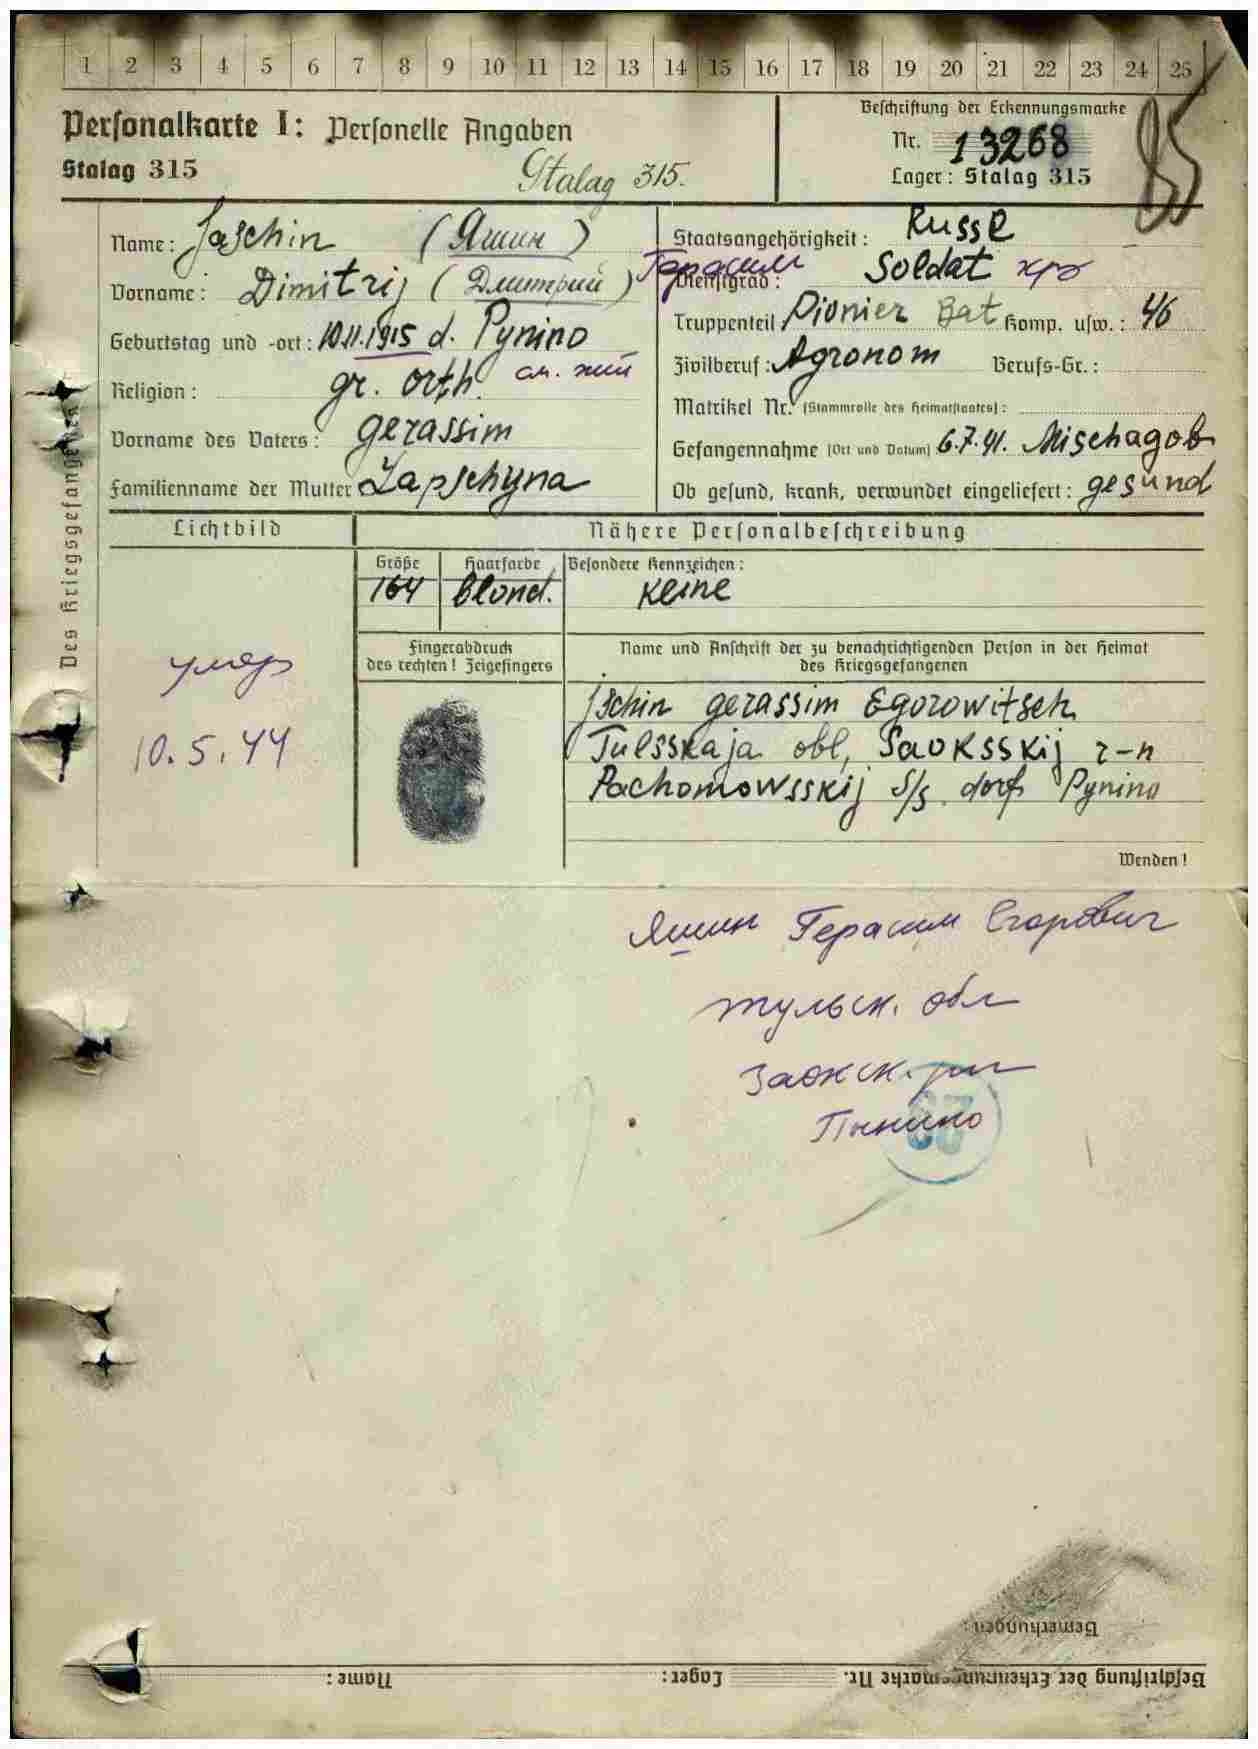 1 2 3 4 5 6 7 8 9 10 11 12 13 14 15 16 17 18 19 20 21 22 23 24 25
Personalkarte I: Personelle Angaben
Stalag 315
Stalag 315.
Beschriftung der Erkennungsmarke
Nr. 13268
Lager: Stalag 315
85
Des Kriegsgefangenen
Name: Jaschin (Яшин)
Vorname: Dimitrij (Дмитрий) Герасим
Geburtstag und -ort: 10.11.1915 d. Pynino
см. ниж
Religion: gr. orth.
Vorname des Vaters: gerassim
Familienname der Mutter Lapschyna
Staatsangehörigkeit: Russe
Dienstgrad: Soldat кр
Truppenteil Pionier Bat Komp. usw.: 46
Zivilberuf: Agronom Berufs-Gr.:
Matrikel Nr. (Stammrolle des Heimatstaates):
Gefangennahme (Ort und Datum) 6.7.41. Mischagob
Ob gesund, krank, verwundet eingeliefert: gesund
Lichtbild
Nähere Personalbeschreibung
Größe Haarfarbe Besondere Kennzeichen:
164 blond. keine
умер
10.5.44
Fingerabdruck
des rechten! Zeigefingers
Name und Anschrift der zu benachrichtigenden Person in der Heimat
des Kriegsgefangenen
Jschin gerassim Egorowitsch
Tulsskaja obl, Saoksskij r-n
Pachomowsskij S/s. dorf Pynino
Wenden!
Яшин Герасим Егорович
тульск. обл
Заокск. рн
Пынино
Bemerkungen:
Beschriftung der Erkennungsmarke Nr. Lager: Name: